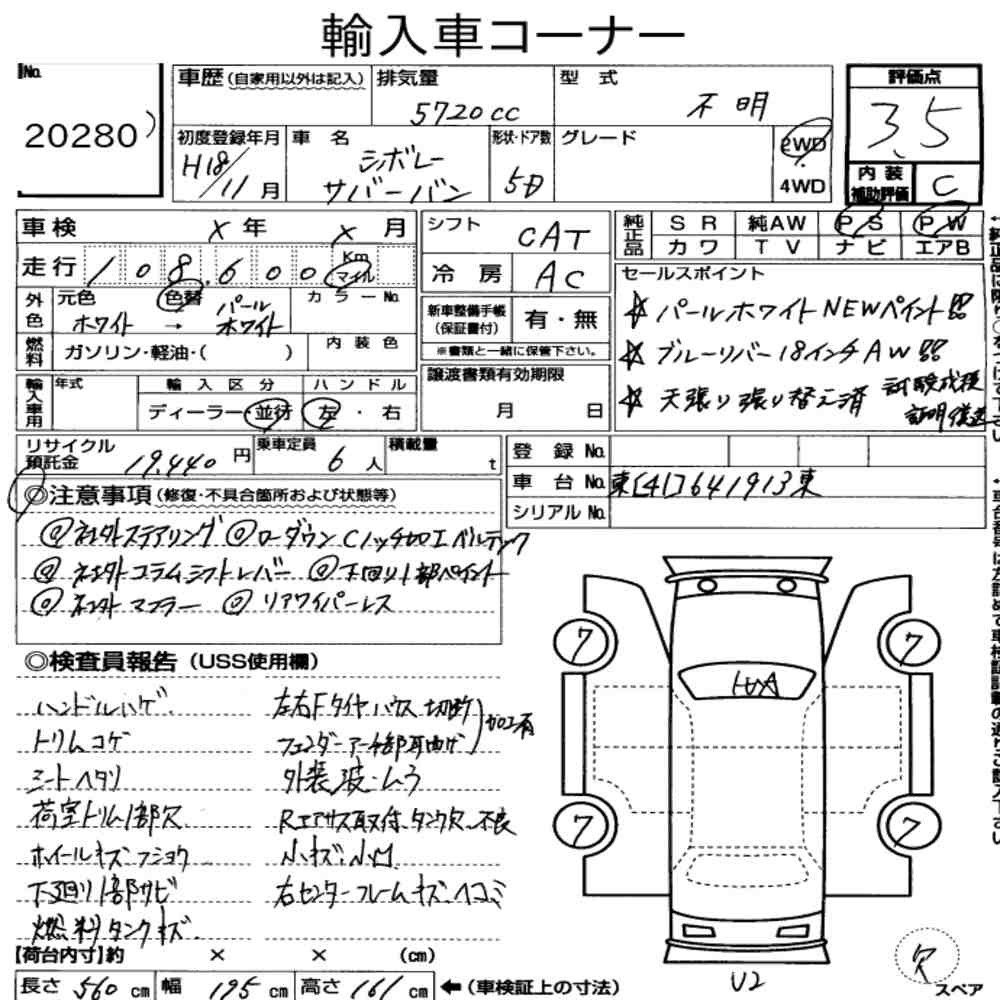 輸入車コーナー
No. 20280
車歴 (自家用以外は記入)
排気量 5720cc
型式 不明
評価点 3.5
初度登録年月 H18/11月
車名 シボレー サバーバン
形状・ドア数 5D
グレード
2WD・4WD
内装補助評価 C
車検 × 年 × 月
シフト CAT
純正品 SR 純AW PS PW
カワ TV ナビ エアB
走行 108,600 Km マイル
冷房 AC
外色 元色 ホワイト → 色替 パールホワイト カラーNo.
新車整備手帳(保証書付) 有・無
※書類と一緒に保管下さい。
燃料 ガソリン・軽油・( ) 内装色
セールスポイント
☆ パールホワイトNEWペイント!!
☆ ブルーリバー18インチAW!!
☆ 天張り張り替え済 試験成績証明
輸入車用 年式 輸入区分 ハンドル
ディーラー・並行 左・右
譲渡書類有効期限 月 日
リサイクル預託金 19,440円
乗車定員 6人
積載量 t
登録No.
車台No. 東[41]641913東
シリアルNo.
◎注意事項(修復・不具合箇所および状態等)
◎社外ステアリング ◎ローダウンCノッチ加工ベルテック
◎社外コラムシフトレバー ◎下回り1部ペイント
◎社外マフラー ◎リアワイパーレス
◎検査員報告(USS使用欄)
ハンドルハゲ
トリムコゲ
シートヘタリ
荷室トリム1部欠
ホイールキズ・フショク
下廻り1部サビ
燃料タンクキズ
左右Fタイヤハウス切断
フェンダーアーチ部耳曲げ 加工有
外装波・ムラ
Rエアサス取付、タンク欠、不良
小キズ・小凹
右センターフレームキズ・ヘコミ
7
7
7
7
U2
欠
スペア
【荷台内寸】約 × × (cm)
長さ 560 cm 幅 195 cm 高さ 161 cm ←(車検証上の寸法)